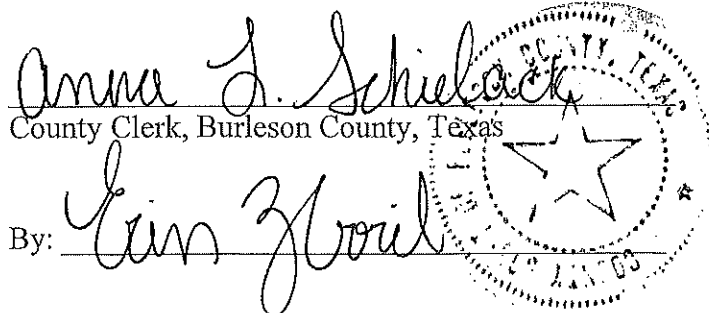 Anna L. Schielack
County Clerk, Burleson County, Texas
By: Erin
COUNTY, TEXAS